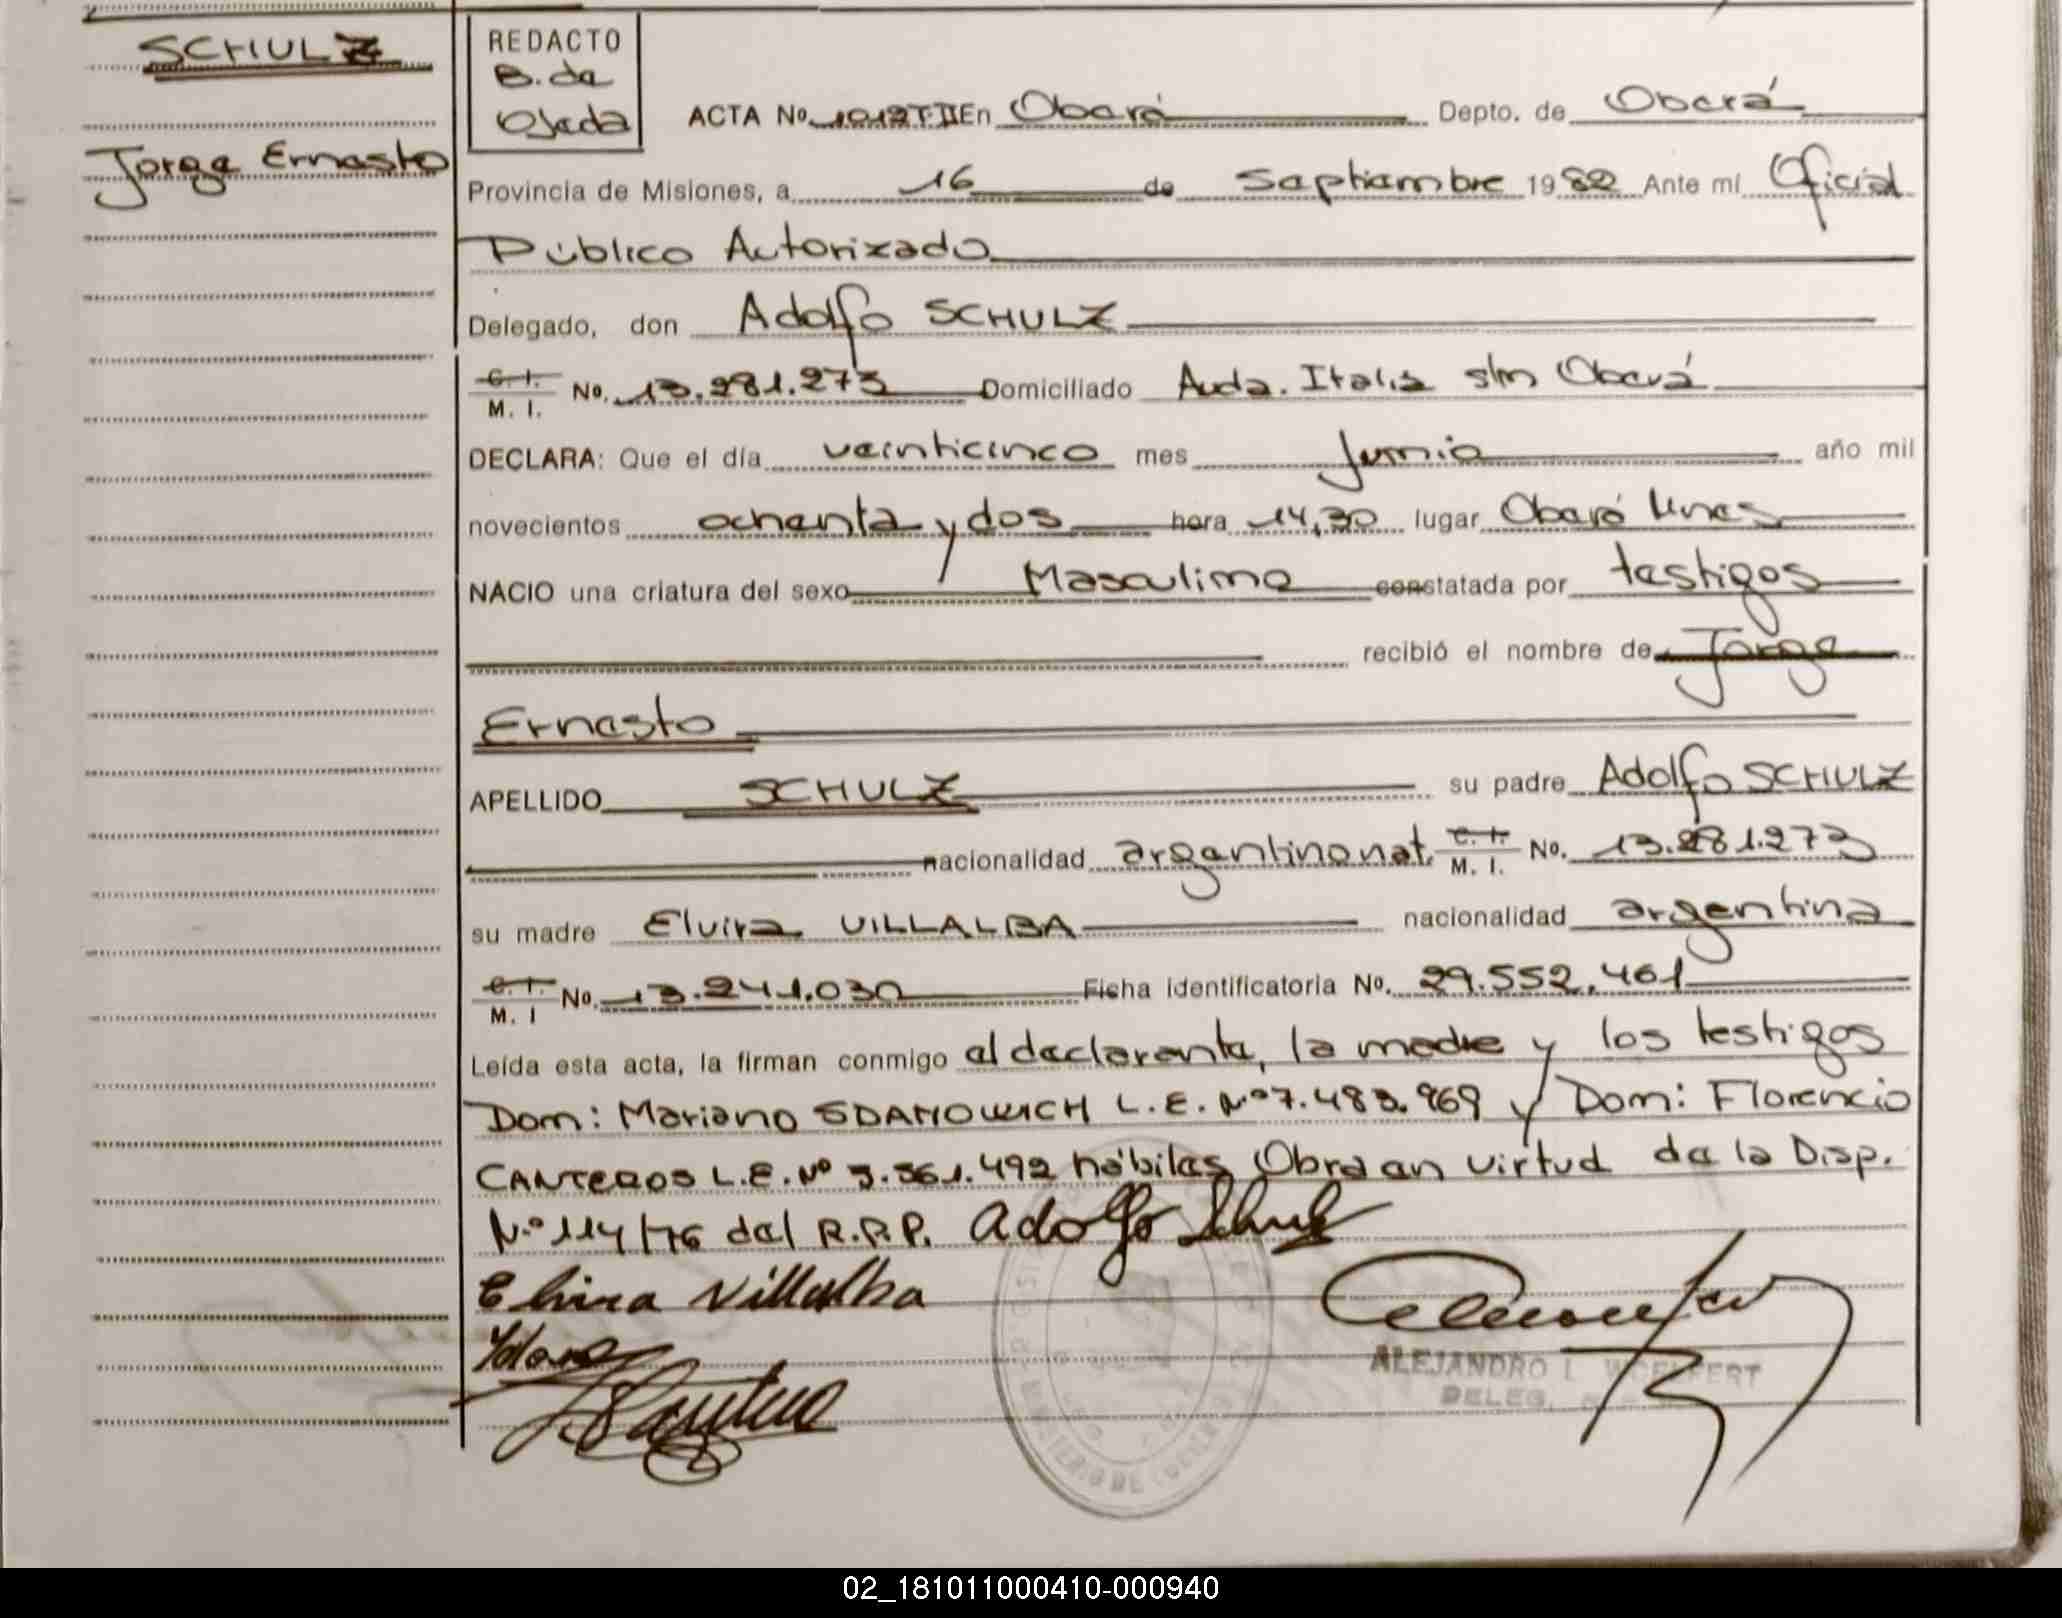 SCHULZ
Jorge Ernesto
REDACTO
B. de
Ojeda
ACTA No. 1012 T-II En Oberá Depto. de Oberá
Provincia de Misiones, a 16 de Septiembre 1982 Ante mí Oficial
Público Autorizado
Delegado, don Adolfo SCHULZ
C. I. M. I. No. 13.281.273 Domiciliado Avda. Italia s/n Oberá
DECLARA: Que el día veinticinco mes Junio año mil
novecientos ochenta y dos hora 14,30 lugar Oberá Mnes
NACIO una criatura del sexo Masculino constatada por testigos
recibió el nombre de Jorge
Ernesto
APELLIDO SCHULZ su padre Adolfo SCHULZ
nacionalidad argentino nat. C. I. M. I. No. 13.281.273
su madre Elvira VILLALBA nacionalidad argentina
C. I. M. I No. 13.241.030 Ficha identificatoria No. 29.552.461
Leída esta acta, la firman conmigo el declarante, la madre y los testigos
Dom: Mariano SDANOWICH L.E. Nº 7.483.969 y Dom: Florencio
CANTEROS L.E. Nº 3.561.492 hábiles Obra en virtud de la Disp.
N.º 114/76 del R.P.P. Adolfo Schulz
Elvira Villalba
ALEJANDRO L. WOELFERT
DELEG.
MINISTERIO DE GOBIERNO
02_181011000410-000940